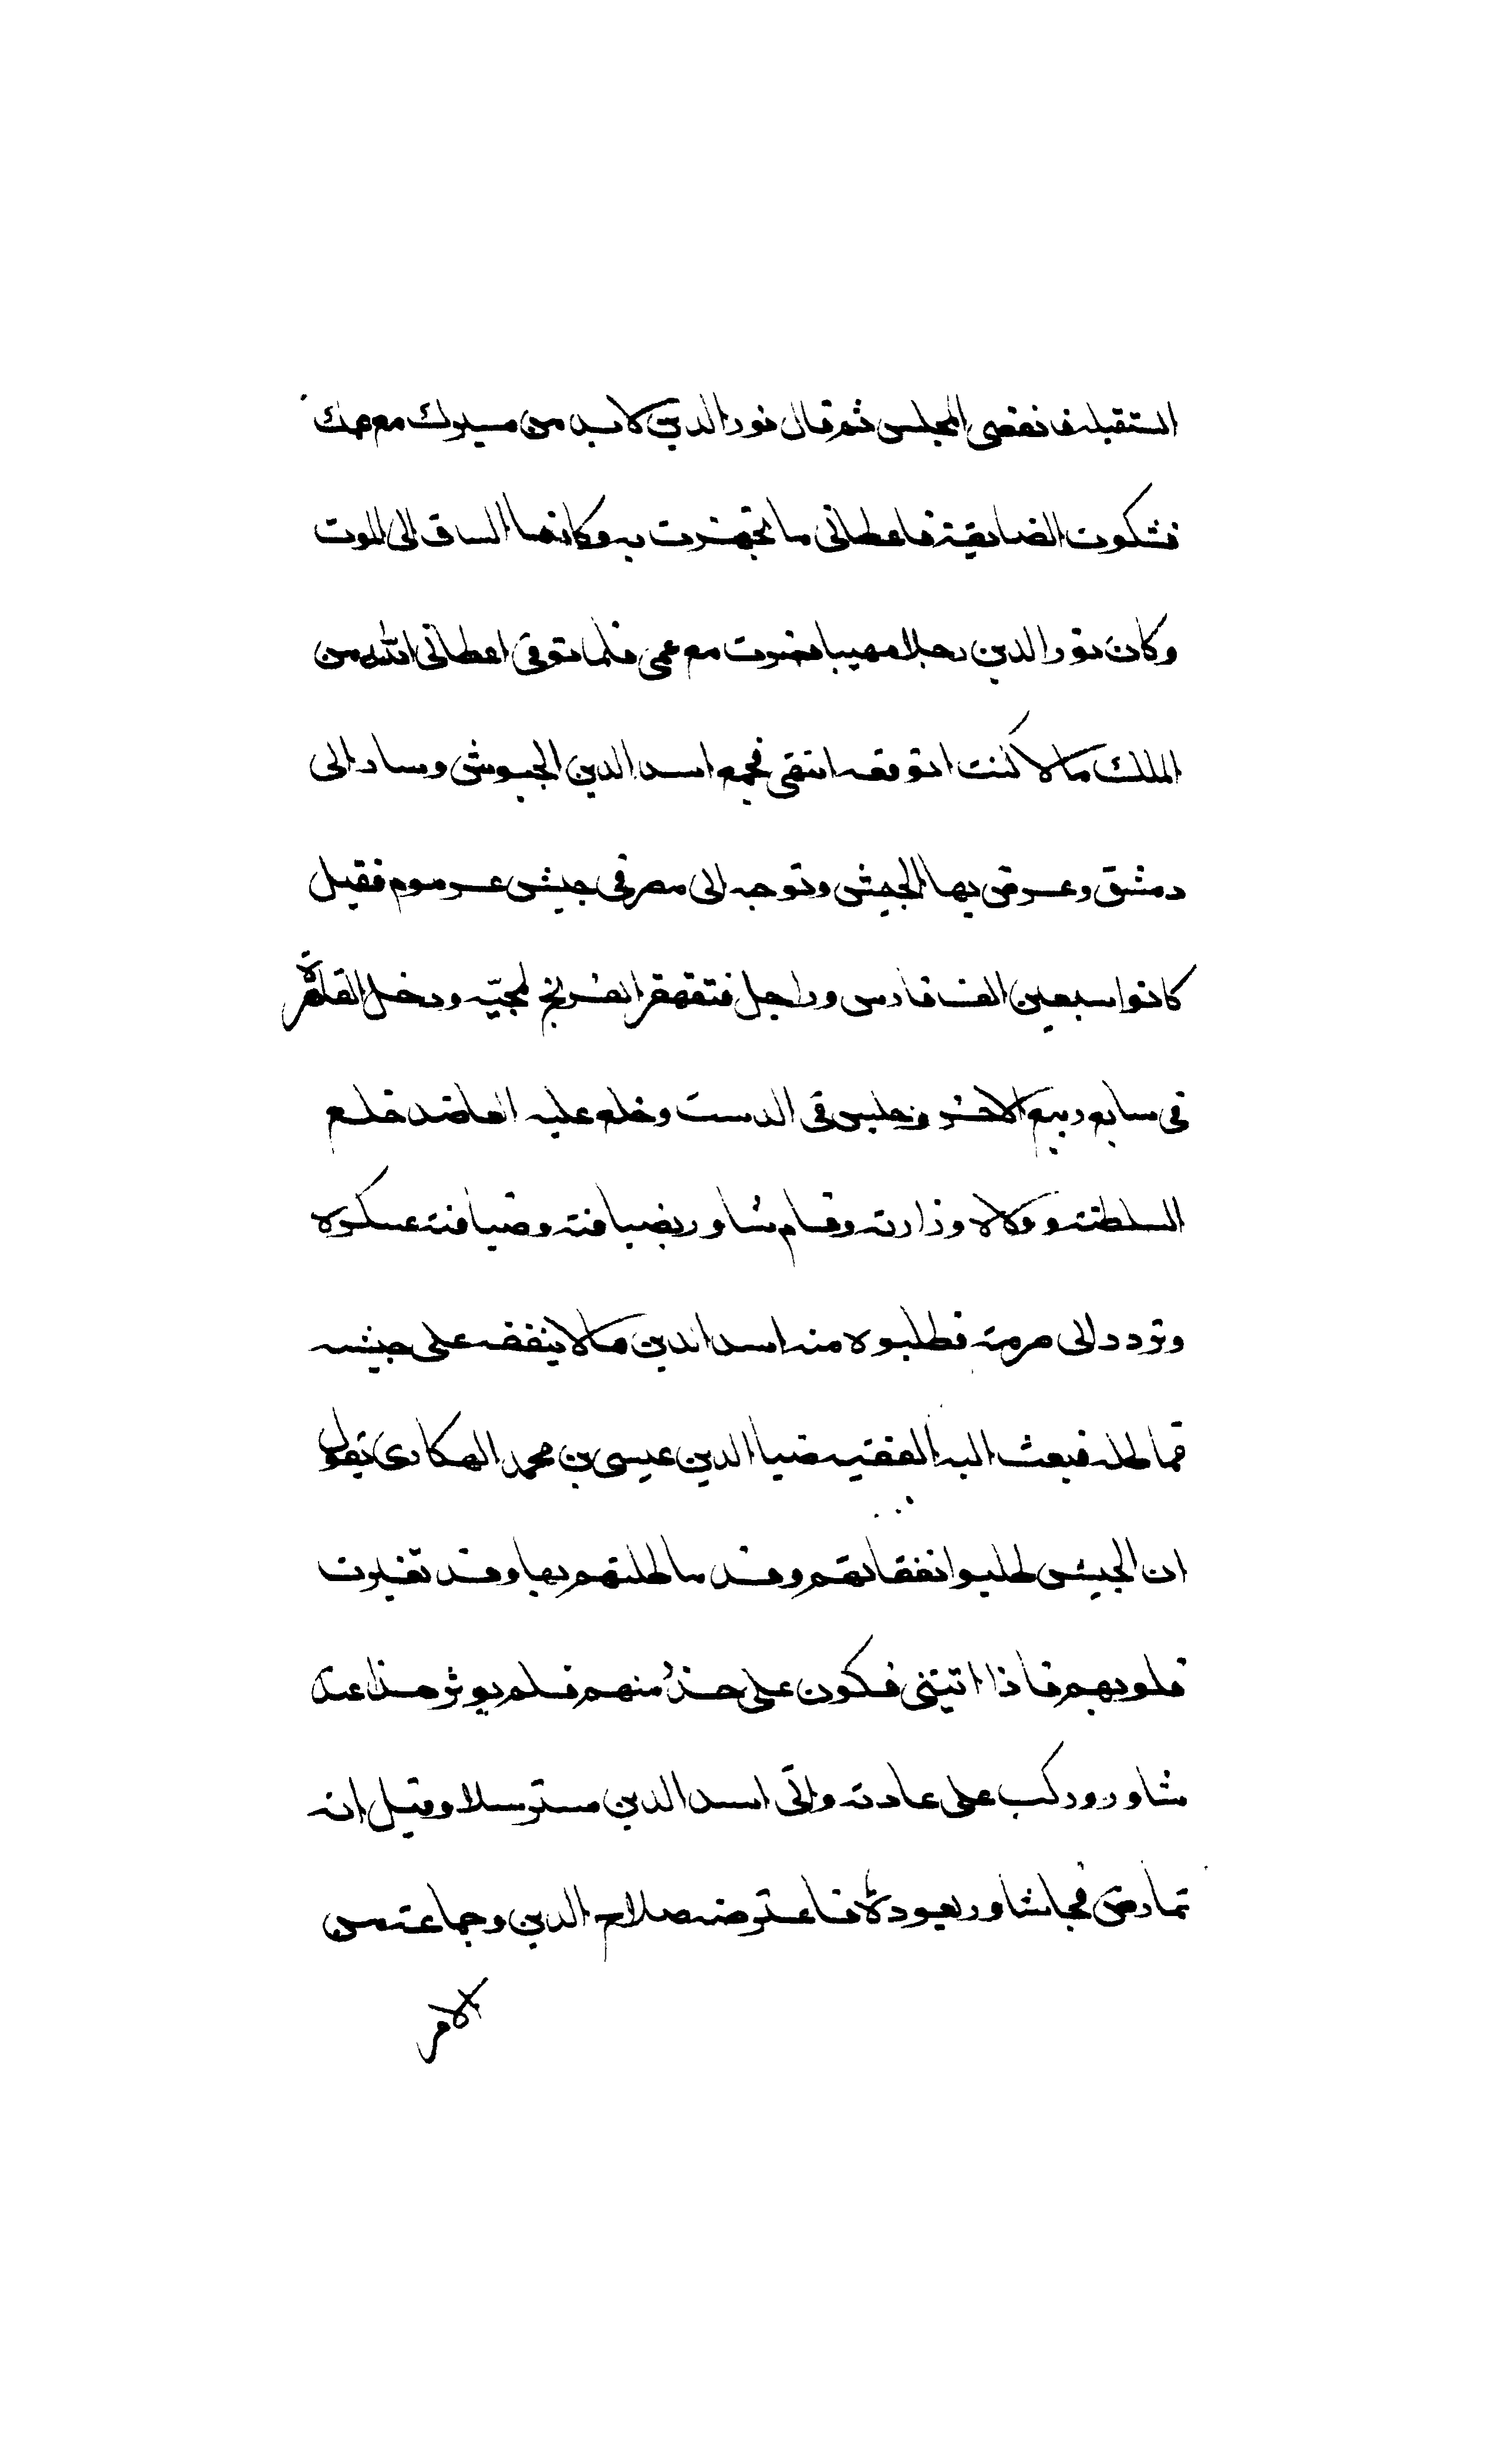 استقبله فانفضى المجلس ثم قال نور الدين لابد من مسيرك مع عمك
فشكوت الضايقة فاعطانى ما تجهزت به وكانما اساق الى الموت
وكان نور الدين رجلا مهيبا فسرت مع عمى فلما توفى اعطانى الله من
الملك مالا كنت اتوقعه انتهى فجمع اسد الدين الجيوش وسار الى
دمشق وعرض بها الجيش وتوجه الى مصر فى جيش عرموم فقيل
كانوا سبعين الف فارس وراجل فتقهقر الفرنج لمجيّه ودخل القاهرة
فى سابع ربيع الاخر وجلس فى الدست وخلع عليه العاضد خلع
السلطنة وولاه وزارته وقام شاور بضيافته وضيافة عسكره
وتردد الى خدمته فطلبوه منه اسد الدين مالا ينفقه على جيشه
فماطله فبعث اليه الفقيه ضيا الدين عيسى بن محمد الهكارى يقول
ان الجيش طلبوا نفقاتهم وقد ماطلتهم بها وقد تغيرت
قلوبهم فاذا اتيتنى فكون على حذر منهم فلم يوثر هذا عند
شاور وركب على عادته واتى اسد الدين مسترسلا وقيل انه
تمارض فجا شاور يعوده فاعترضه صلاح الدين وجماعة من
الامر